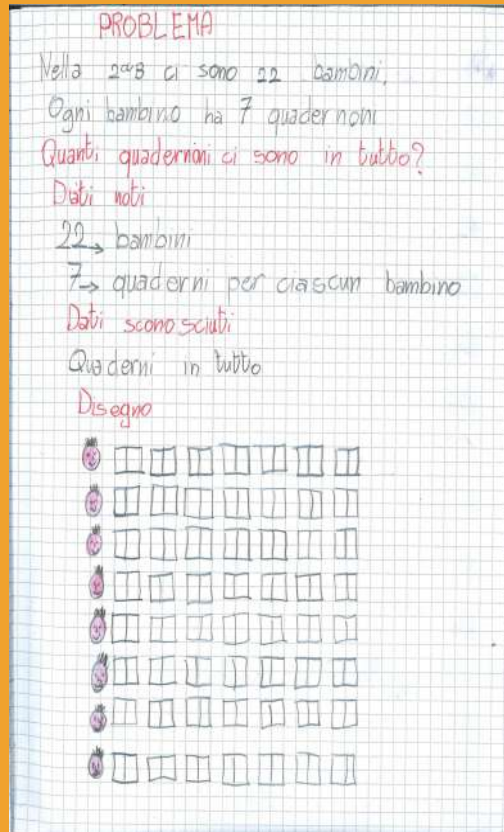 PROBLEMA
Nella 2ªB ci sono 22 bambini.
Ogni bambino ha 7 quadernoni
Quanti quadernoni ci sono in tutto?
Dati noti
22→ bambini
7→ quaderni per ciascun bambino
Dati sconosciuti
Quaderni in tutto
Disegno